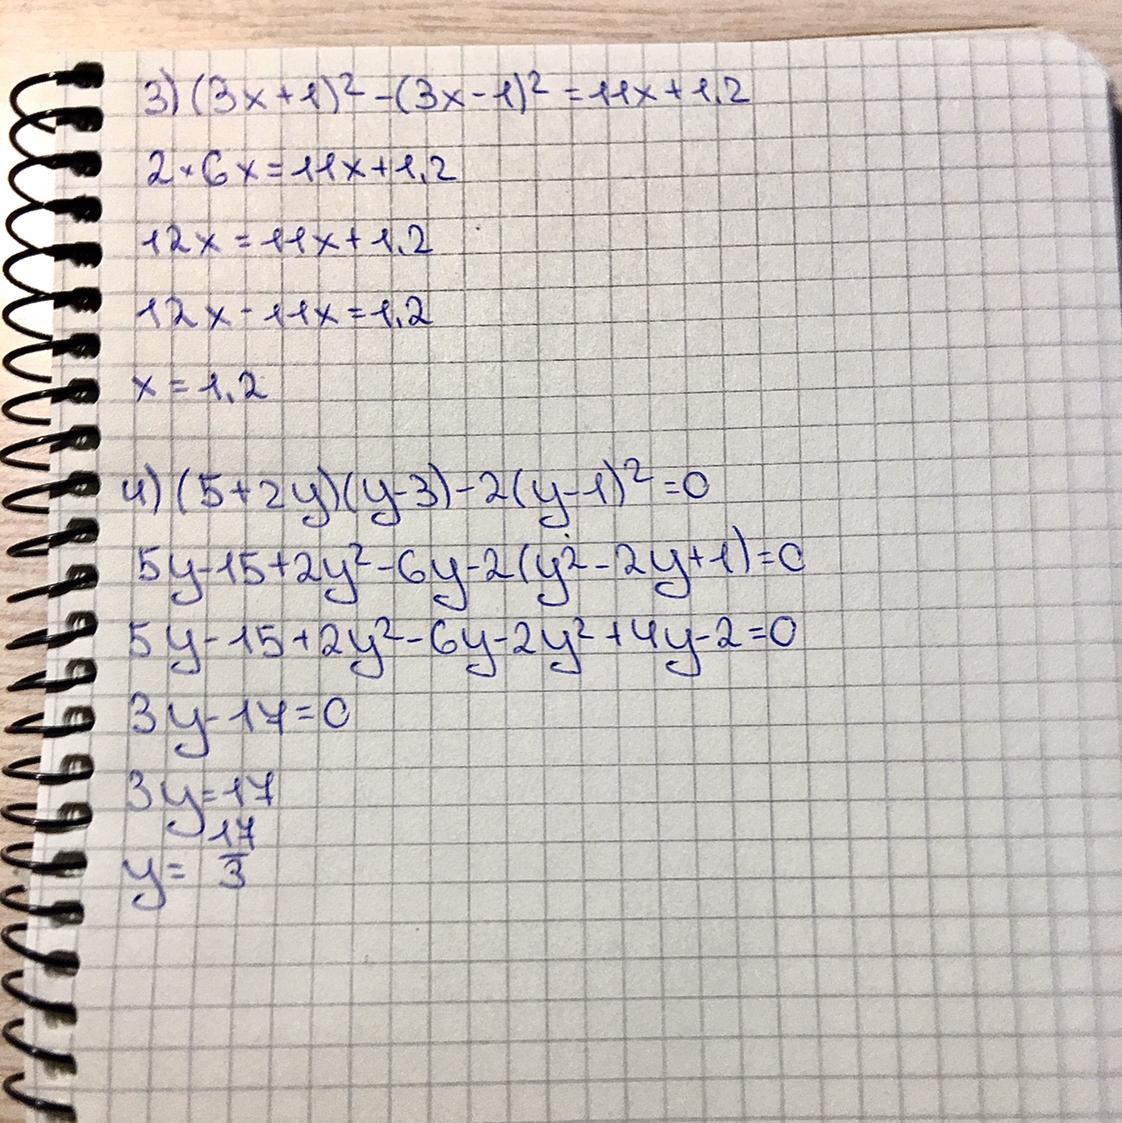 3) (3x+1)² -(3x-1)² =11x+1,2
2·6x=11x+1,2
12x=11x+1,2
12x-11x=1,2
x=1,2
4) (5+2y)(y-3)-2(y-1)²=0
5y-15+2y²-6y-2(y²-2y+1)=0
5y-15+2y²-6y-2y²+4y-2=0
3y-17=0
3y=17
y= 17/3